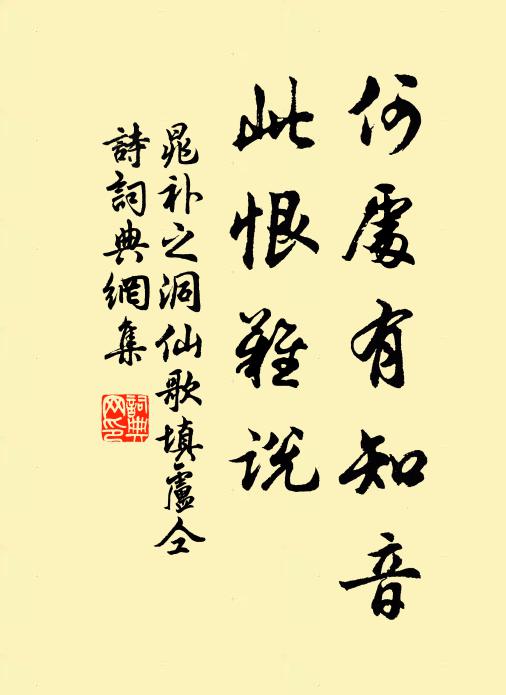 何處有知音
此恨難说
晁补之洞仙歌填盧仝
詩詞典網集
詞典
网印